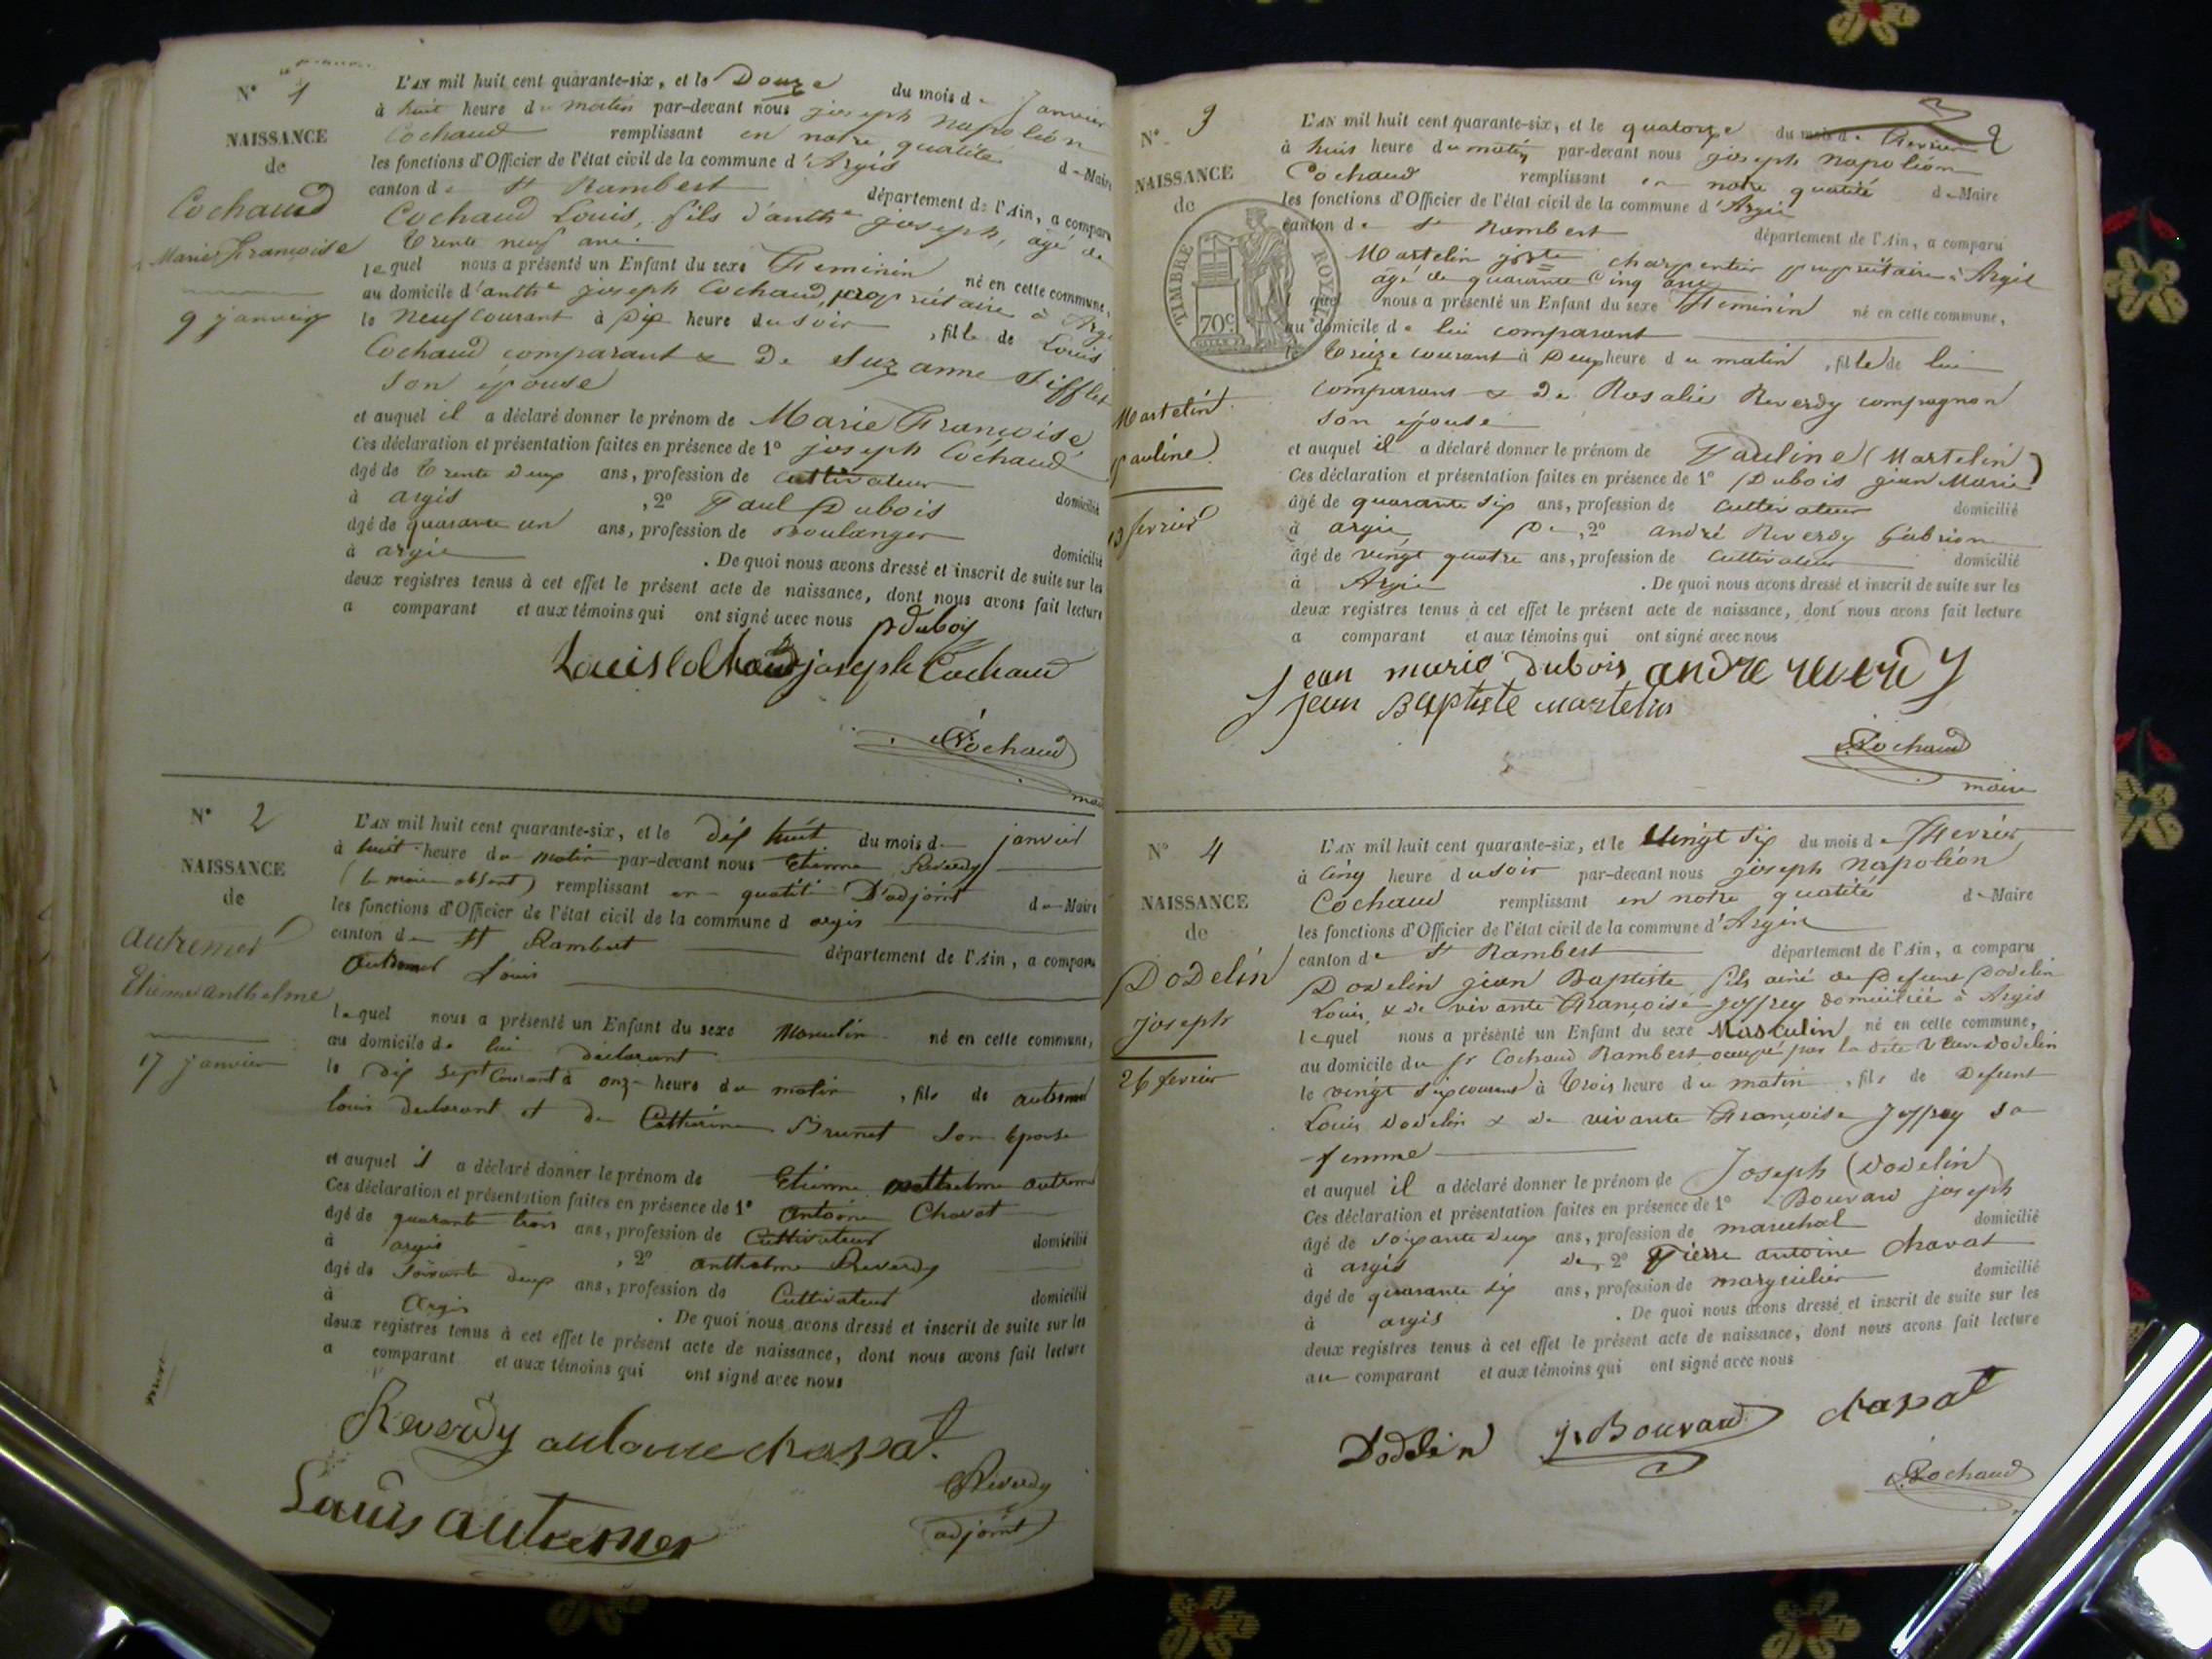 N° 1
NAISSANCE
de
Cochaud
Marie Françoise
9 janvier
L'AN mil huit cent quarante-six, et le Douze du mois de Janvier
à huit heure du matin par-devant nous joseph napoléon
Cochaud remplissant en notre qualité de Maire
les fonctions d'Officier de l'état civil de la commune d'Argis
canton de St Rambert département de l'Ain, a comparu
Cochaud Louis, fils d'anthe joseph, âgé de
trente neuf ans
lequel nous a présenté un Enfant du sexe Feminin né en cette commune,
au domicile d'anthe joseph Cochaud, propriétaire à Argis
le neuf courant à Dix heure du soir, fille de Louis
Cochaud comparant & de Suzanne Sifflet
son épouse
et auquel il a déclaré donner le prénom de Marie Françoise
Ces déclaration et présentation faites en présence de 1° joseph Cochaud
âgé de trente deux ans, profession de cultivateur domicilié
à argis, 2° Paul Dubois
âgé de quarante un ans, profession de Boulanger domicilié
à argis. De quoi nous avons dressé et inscrit de suite sur les
deux registres tenus à cet effet le présent acte de naissance, dont nous avons fait lecture
a comparant et aux témoins qui ont signé avec nous
P Dubois
Louis Cochaud joseph Cochaud
Cochaud
maire
N° 2
NAISSANCE
de
autremer
Etienne anthelme
17 janvier
L'AN mil huit cent quarante-six, et le dix huit du mois de janvier
à huit heure du matin par-devant nous Etienne Reverdy
(le maire absent) remplissant en qualité D'adjoint de Maire
les fonctions d'Officier de l'état civil de la commune d argis
canton de St Rambert département de l'Ain, a comparu
autremer Louis
lequel nous a présenté un Enfant du sexe Masculin né en cette commune,
au domicile de lui déclarant
le dix sept Courant à onze heure du matin, fils de autremer
louis declarant et de Catherine Brunet son épouse
et auquel il a déclaré donner le prénom de Etienne anthelme autremer
Ces déclaration et présentation faites en présence de 1° Antoine Chavat
âgé de quarante trois ans, profession de Cultivateur domicilié
à argis, 2° anthelme Reverdy
âgé de soixante deux ans, profession de Cultivateur domicilié
à Argis. De quoi nous avons dressé et inscrit de suite sur les
deux registres tenus à cet effet le présent acte de naissance, dont nous avons fait lecture
a comparant et aux témoins qui ont signé avec nous
Reverdy antoine chavat
Louis autremer
Reverdy
adjoint
2
N° 3
NAISSANCE
de
TIMBRE ROYAL
70c
Martelin
Pauline
13 fevrier
L'AN mil huit cent quarante-six, et le quatorze du mois de Fevrier
à huit heure du matin par-devant nous joseph napoléon
Cochaud remplissant en notre qualité de Maire
les fonctions d'Officier de l'état civil de la commune d'Argis
canton de St Rambert département de l'Ain, a comparu
Martelin jbste charpentier propriétaire à Argis
âgé de quarante Cinq ans
lequel nous a présenté un Enfant du sexe Feminin né en cette commune,
au domicile de lui comparant
le treize courant à Deux heure du matin, fille de lui
comparant & de Rosalie Reverdy compagnon
son épouse
et auquel il a déclaré donner le prénom de Pauline (Martelin)
Ces déclaration et présentation faites en présence de 1° Dubois jean Marie
âgé de quarante six ans, profession de Cultivateur domicilié
à argis De, 2° andré Reverdy Gabrion
âgé de vingt quatre ans, profession de Cultivateur domicilié
à Argis. De quoi nous avons dressé et inscrit de suite sur les
deux registres tenus à cet effet le présent acte de naissance, dont nous avons fait lecture
a comparant et aux témoins qui ont signé avec nous
jean marie dubois andre reverdy
jean Baptiste martelin
Cochaud
maire
N° 4
NAISSANCE
de
DODelin
joseph
26 fevrier
L'AN mil huit cent quarante-six, et le Vingt six du mois de Fevrier
à Cinq heure du soir par-devant nous joseph napoléon
Cochaud remplissant en notre qualité de Maire
les fonctions d'Officier de l'état civil de la commune d'Argis
canton de St Rambert département de l'Ain, a comparu
Dodelin jean Baptiste fils ainé de Defunt Dodelin
Louis, & de vivante Françoise Joffrey domiciliée à Argis
lequel nous a présenté un Enfant du sexe Masculin né en cette commune,
au domicile du sr Cochaud Rambert occupé par la dite Veuve Dodelin
le vingt six courant à trois heure du matin, fils de Defunt
Louis Dodelin & de vivante Françoise Joffrey sa
femme
et auquel il a déclaré donner le prénom de Joseph (Dodelin)
Ces déclaration et présentation faites en présence de 1° Bouvard joseph
âgé de soixante deux ans, profession de marechal domicilié
à argis De, 2° Pierre antoine chavat
âgé de quarante six ans, profession de marguilier domicilié
à argis. De quoi nous avons dressé et inscrit de suite sur les
deux registres tenus à cet effet le présent acte de naissance, dont nous avons fait lecture
au comparant et aux témoins qui ont signé avec nous
Dodelin j. Bouvard chavat
Cochaud